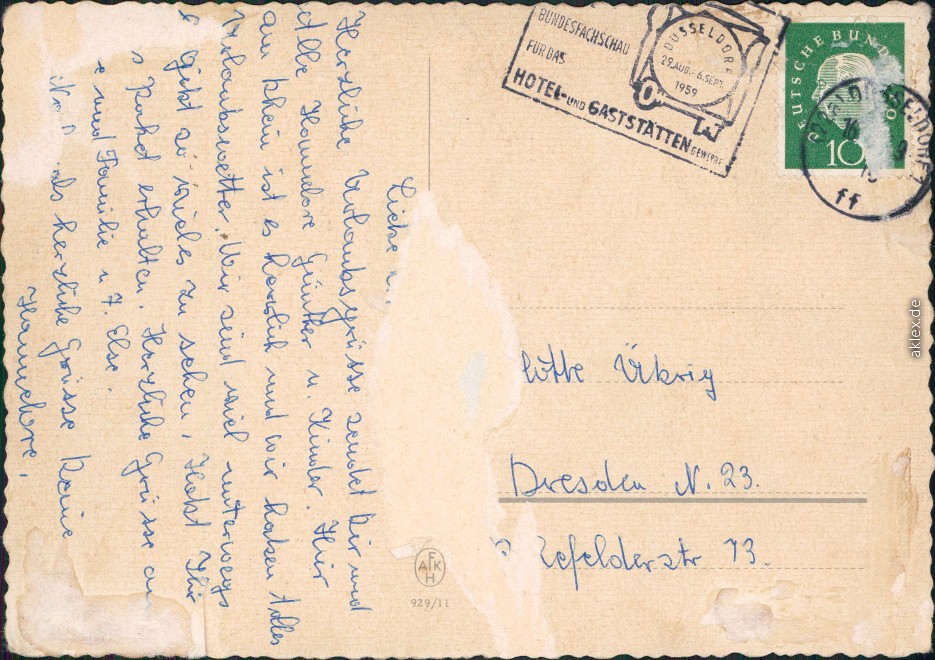 Liebe
Herzliche Urlaubsgrüsse sendet Dir und
Alle Hannelore Günther u. Kinder. Hier
am Rhein ist es herrlich und wir haben tolles
Urlaubswetter. Wir sind viel unterwegs
gibt so vieles zu sehen. Habt Ihr
s Paket erhalten. Herzliche Grüsse an
e und Familie u T. Else.
als herzliche Grüsse Deine
Hannelore.
BUNDESFACHSCHAU
FÜR DAS
HOTEL- UND GASTSTÄTTEN GEWERBE
DÜSSELDORF
29.AUG.-6.SEPT.
1959
DEUTSCHE BUND
10
DÜSSELDORF 1
ff
lotte Ükrig
Dresden N. 23.
Refelderstr 13.
AFKH
929/11
aklex.de